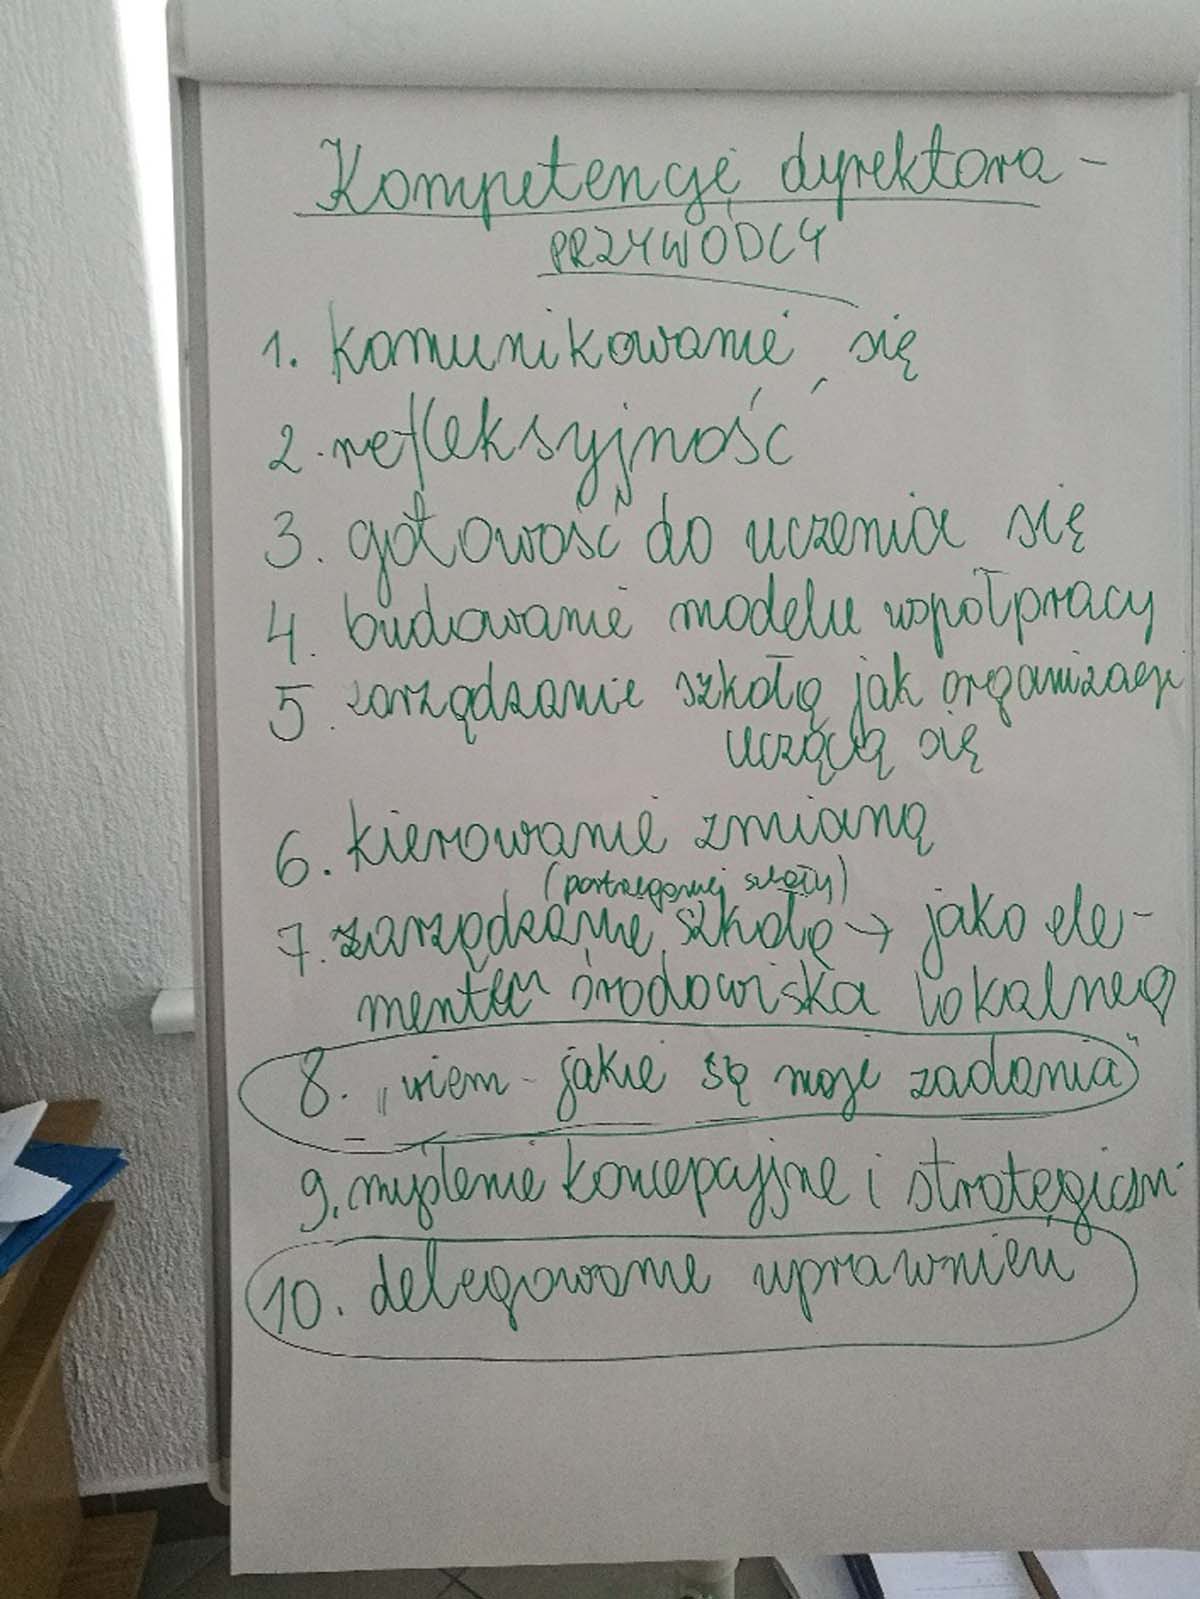 Kompetencje dyrektora -
PRZYWÓDCY
1. komunikowanie się
2. refleksyjność
3. gotowość do uczenia się
4. budowanie modelu współpracy
5. zarządzanie szkołą jak organizacją
uczącą się
6. kierowanie zmianą
(postrzeganej szkoły)
7. zarządzanie szkołą → jako ele-
mentem środowiska lokalnego
8. „wiem - jakie są moje zadania"
9. myślenie koncepcyjne i strategiczn
10. delegowanie uprawnień